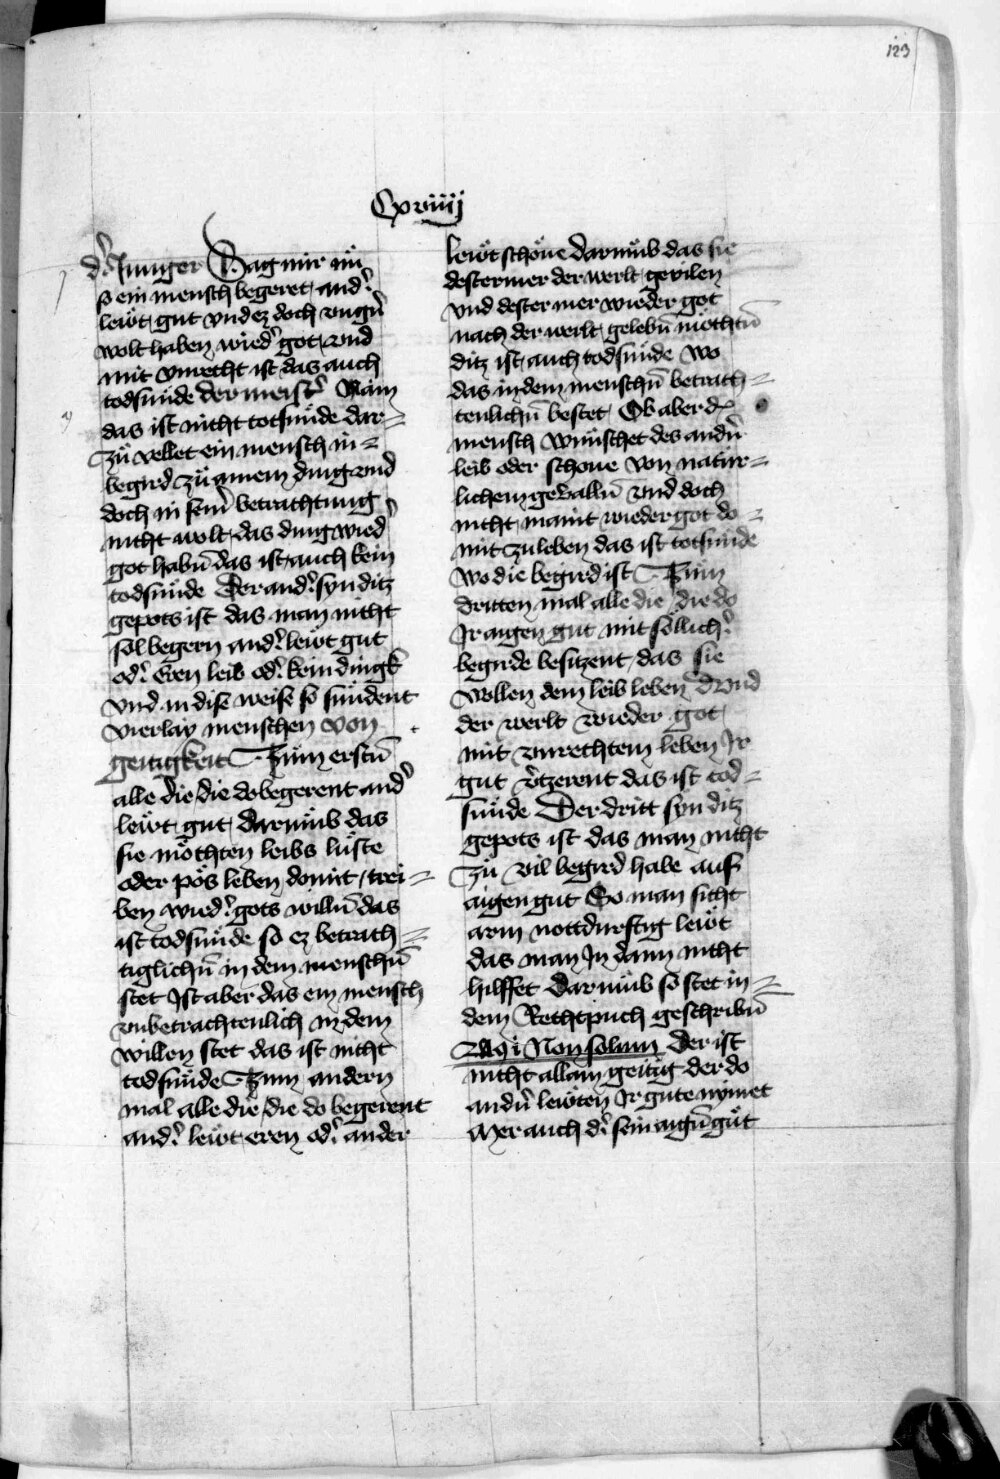 123
Cxviiij
d̾ Junger Sag mir nů
so ein mensch begeret and̾
lewt gut vnd ez doch vngn̄
wolt haben wied̾ got vnd
mit vnrecht ist das auch
todsůnde der meist̾ Nain
das ist nicht totsůnde dar=
Zů vellet ein mensch in=
begird zů ainem ding vnd
doch in sein̄ betrachtung
nicht wolt das ding wied̾
got habn̄ das ist auch kein
todsůnde Der and̾ syn ditz
gepots ist das man nicht
sol begern and̾ lewt gut
od̾ Eren leib od̾ kein dingk
vnd in dise weise so sůndent
vierlay menschen von
geitigkeit Zům erstn̄
alle die die do begerent and̾
lewt gut darůmb das
sie möchten leibs lůste
oder pös leben domit trei=
ben wied̾ gots willn̄ das
ist todsůnde so ez betrach=
tiglichn̄ in dem menschn̄
stet Ist aber das ein mensch
vnbetrachtenlich in dem
willen stet das ist nicht
todsůnde Zum andern
mal alle die die do begerent
and̾ lewt eren od̾ ander
lewt schöne darůmb das sie
dester mer der werlt gevilen
vnd dester mer wieder got
nach der werlt gelebn̄ möchtn̄
ditz ist auch todsůnde wo
das in dem menschn̄ betrach=
tenlichn̄ bestet Ob aber d̾
mensch wůnschet des andn̄
leib oder schone von natůr=
lichem gevalln̄ vnd doch
nicht maint wieder got do=
mit zu leben das ist totsůnde
wo die begird ist Zům
dritten mal alle die die do
Jr aigen gut mit söllich̾
begirde besitzent das sie
wollen dem leib leben vnd
der werlt wieder got
mit vnrechtem leben Jr
gut v̾tzerent das ist tod=
sůnde Der dritt syn ditz
gepots ist das man nicht
Zů vil begird habe auf
aigen gut So man sicht
arm nottdurftig lewt
das man Jn dann nicht
hilffet Darůmb so stet in=
dem Rechtpuch geschribn̄
Non solum Der ist
nicht allain geitig der do
andn̄ lewten Jr gute nymet
Mer auch d̾ sein aign̄ gůt